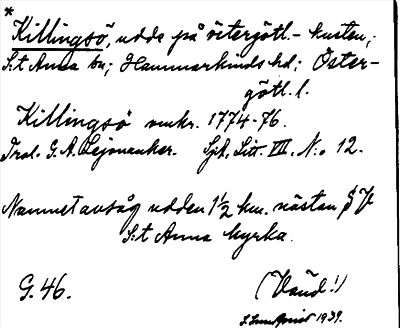 *
Killingsö, udde på östergötl.-kusten,
S:t Anna sn; Hammarkinds hd; Öster-
götl. l.
Killingsö omkr. 1774-76.
Prol. G. A. Lejonanker. Sjk, Litt. VII. No 12.
Namnet avsåg udden 1½ km. nästan
S:t Anna kyrka.
G. 46.
(Vänd!)
1939.